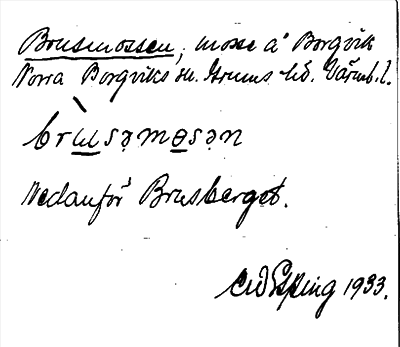 Brusmossen, mosse å Borgvik
Norra Borgviks sn. Grums hd. Värml. l.
brùsəmɵsən
Nedanför Brusberget.
1933.